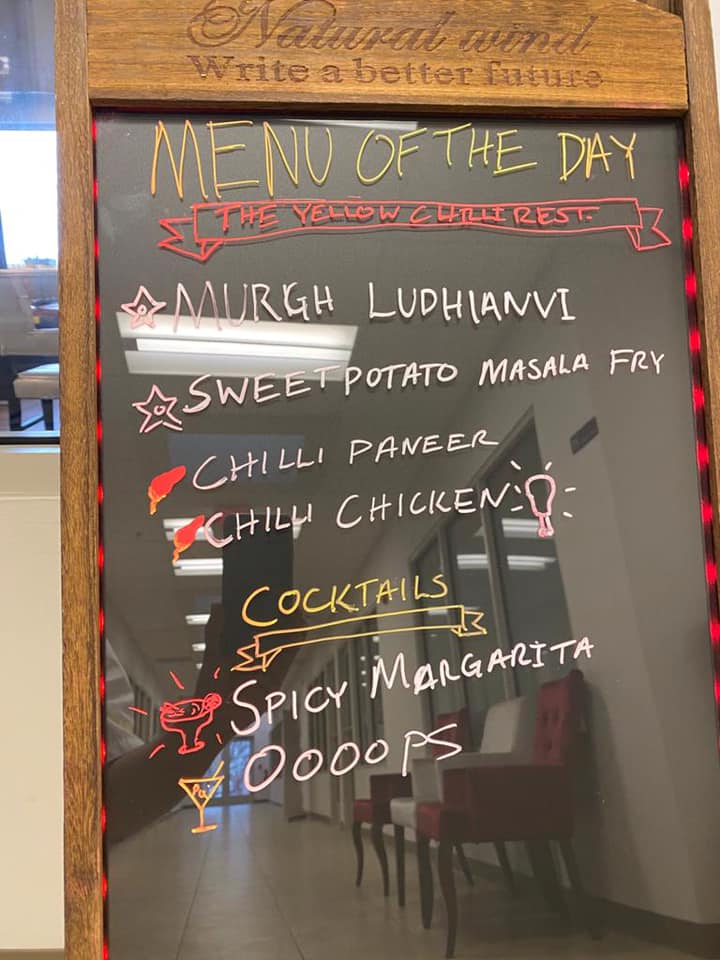 Natural wind
Write a better future
MENU OF THE DAY
THE YELLOW CHILLI REST.
MURGH LUDHIANVI
SWEET POTATO MASALA FRY
CHILLI PANEER
CHILLI CHICKEN
COCKTAILS
SPICY MARGARITA
OOOOPS